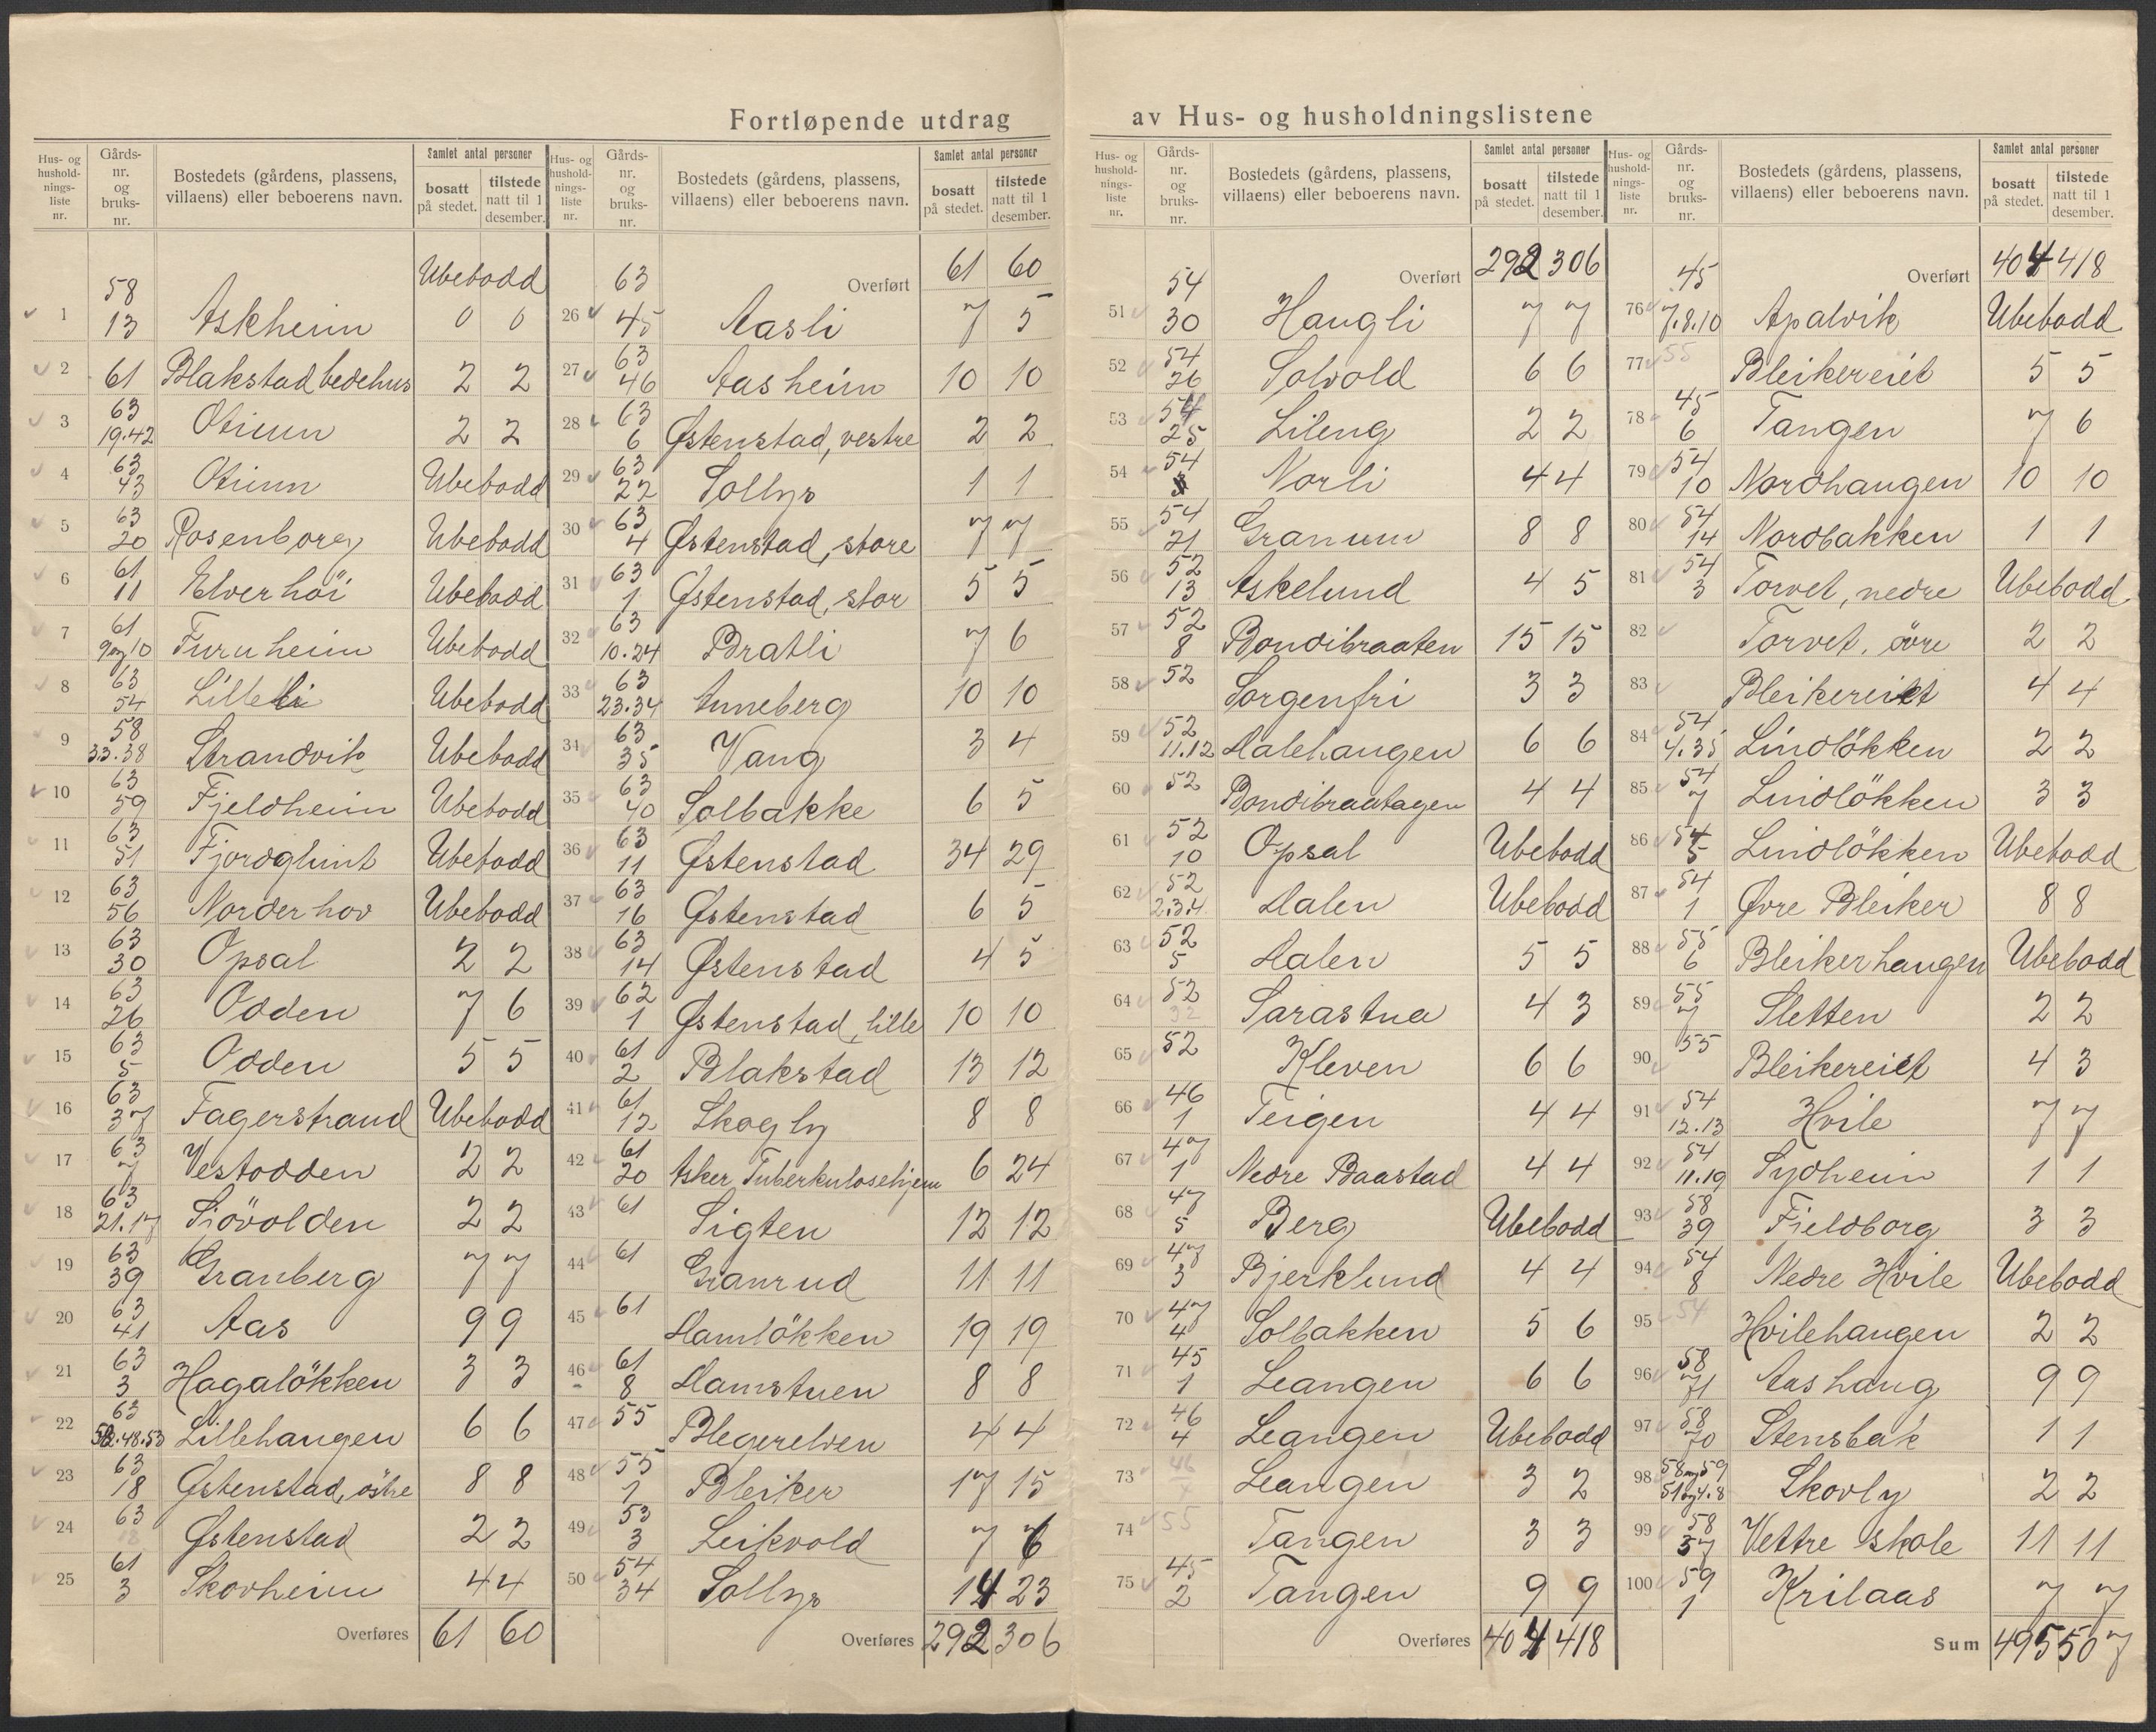 Fortløpende utdrag av Hus- og husholdningslistene
Hus- og hushold-nings-liste nr. Gårds-nr. og bruks-nr. Bostedets (gårdens, plassens, villaens) eller beboerens navn. Samlet antal personer bosatt på stedet. tilstede natt til 1 desember.
Ubebodd
1 58 13 Askheim 0 0
2 61 Blakstad bedehus 2 2
3 63 19.42 Otium 2 2
4 63 43 Otium Ubebodd
5 63 20 Rosenborg Ubebodd
6 61 11 Elverhöi Ubebodd
7 61 9 og 10 Furuheim Ubebodd
8 63 54 Lilleli Ubebodd
9 58 33.38 Strandvik Ubebodd
10 63 59 Fjeldheim Ubebodd
11 63 51 Fjordglimt Ubebodd
12 63 56 Norderhov Ubebodd
13 63 30 Opsal 2 2
14 63 26 Odden 7 6
15 63 5 Odden 5 5
16 63 37 Fagerstrand Ubebodd
17 63 7 Vestodden 2 2
18 63 21.17 Sjövolden 2 2
19 63 39 Granberg 7 7
20 63 41 Aas 9 9
21 63 3 Hagalökken 3 3
22 63 52.48.53 Lillehaugen 6 6
23 63 18 Østenstad, östre 8 8
24 63 18 Østenstad 2 2
25 61 3 Skovheim 4 4
Overføres 61 60
Hus- og hushold-nings-liste nr. Gårds-nr. og bruks-nr. Bostedets (gårdens, plassens, villaens) eller beboerens navn. Samlet antal personer bosatt på stedet. tilstede natt til 1 desember.
Overført 61 60
26 63 45 Aasli 7 5
27 63 46 Aasheim 10 10
28 63 6 Østenstad, vestre 2 2
29 63 22 Sollys 1 1
30 63 4 Østenstad, store 7 7
31 63 1 Østenstad, stor 5 5
32 63 10.24 Bratli 7 6
33 63 23.34 Anneberg 10 10
34 63 35 Vang 3 4
35 63 40 Solbakke 6 5
36 63 11 Østenstad 34 29
37 63 16 Østenstad 6 5
38 63 14 Østenstad 4 5
39 62 1 Østenstad, lille 10 10
40 61 2 Blakstad 13 12
41 61 12 Skogly 8 8
42 61 20 Asker Tuberkulosehjem 6 24
43 61 Sigten 12 12
44 61 Granrud 11 11
45 61 Damlökken 19 19
46 61 8 Damstuen 8 8
47 55 Blegerelven 4 4
48 55 1 Bleiker 17 15
49 53 3 Leikvold 7 6
50 54 34 Sollys 14 23
Overføres 292 306
Hus- og hushold-nings-liste nr. Gårds-nr. og bruks-nr. Bostedets (gårdens, plassens, villaens) eller beboerens navn. Samlet antal personer bosatt på stedet. tilstede natt til 1 desember.
Overført 292 306
51 54 30 Haugli 7 7
52 54 26 Solvold 6 6
53 54 25 Lileng 2 2
54 54 Norli 4 4
55 54 21 Granum 8 8
56 52 13 Askelund 4 5
57 52 8 Bondibraaten 15 15
58 52 Sorgenfri 3 3
59 52 11.12 Dalehaugen 6 6
60 52 Bondibraatagen 4 4
61 52 10 Opsal Ubebodd
62 52 2.3.4. Dalen Ubebodd
63 52 5 Dalen 5 5
64 52 32 Sarastua 4 3
65 52 Kleven 6 6
66 46 1 Teigen 4 4
67 47 1 Nedre Baastad 4 4
68 47 5 Berg Ubebodd
69 47 3 Bjerklund 4 4
70 47 4 Solbakken 5 6
71 45 1 Leangen 6 6
72 46 4 Leangen Ubebodd
73 46 Leangen 3 2
74 55 Tangen 3 3
75 45 2 Tangen 9 9
Overføres 404 418
Hus- og hushold-nings-liste nr. Gårds-nr. og bruks-nr. Bostedets (gårdens, plassens, villaens) eller beboerens navn. Samlet antal personer bosatt på stedet. tilstede natt til 1 desember.
Overført 404 418
76 45 7.8.10 Apalvik Ubebodd
77 55 Bleikereiet 5 5
78 45 6 Tangen 7 6
79 54 10 Nordhaugen 10 10
80 54 14 Nordbakken 1 1
81 54 3 Torvet, nedre Ubebodd
82 Torvet, övre 2 2
83 Bleikereiet 4 4
84 54 4.35 Lindlökken 2 2
85 54 7 Lindlökken 3 3
86 54 5 Lindlökken Ubebodd
87 54 1 Øvre Bleiker 8 8
88 55 6 Bleikerhaugen Ubebodd
89 55 7 Sletten 2 2
90 55 Bleikereiet 4 3
91 54 12.13 Hvile 7 7
92 54 11.19 Sydheim 1 1
93 58 39 Fjeldborg 3 3
94 54 8 Nedre Hvile Ubebodd
95 54 Hvilehaugen 2 2
96 58 71 Aashaug 9 9
97 58 70 Stensbak 1 1
98 58 og 59 51 og 4.8 Skovly 2 2
99 58 57 Vettre skole 11 11
100 59 1 Krilaas 7 7
Sum 495 507